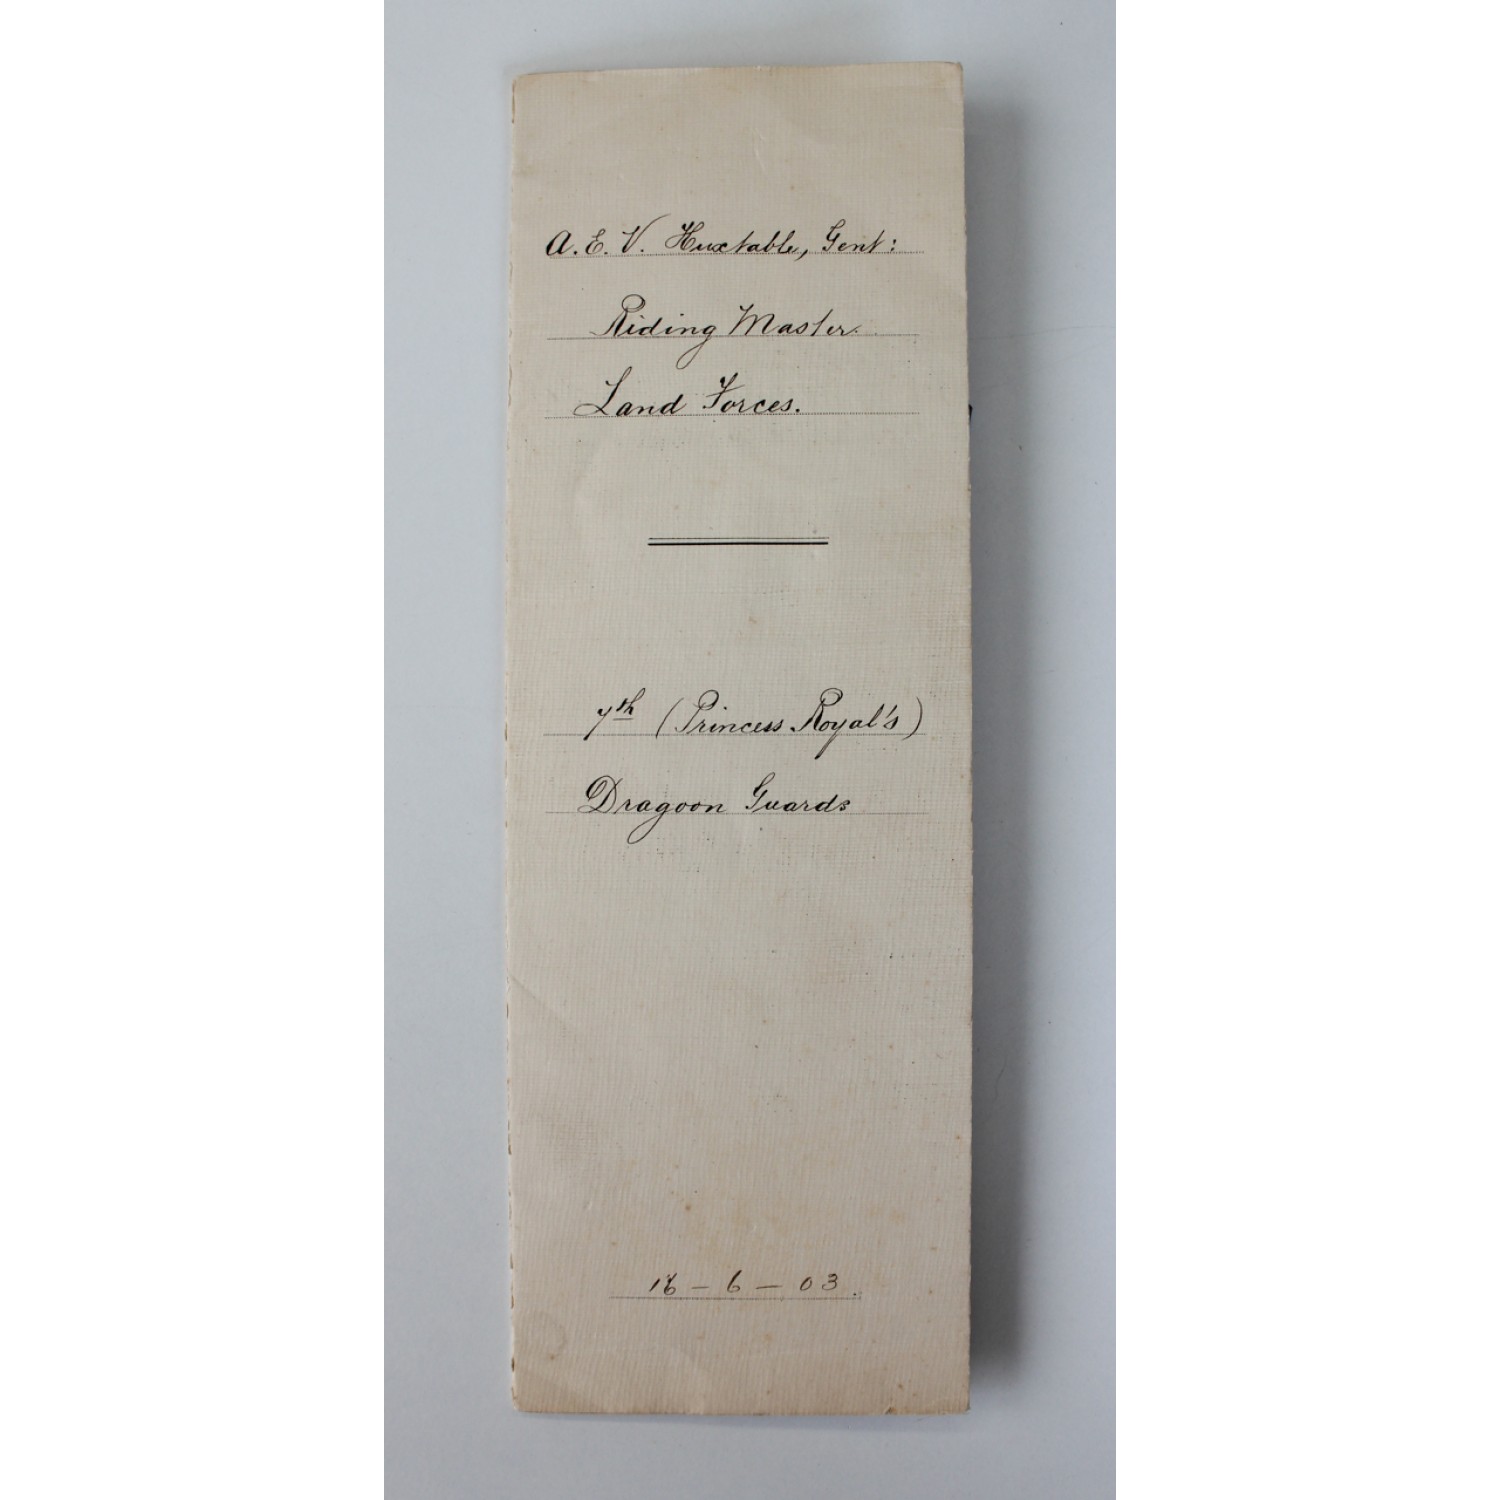 A. E. V. Huxtable, Gent:
Riding Master.
Land Forces.
7th (Princess Royal's)
Dragoon Guards
16 - 6 - 03.